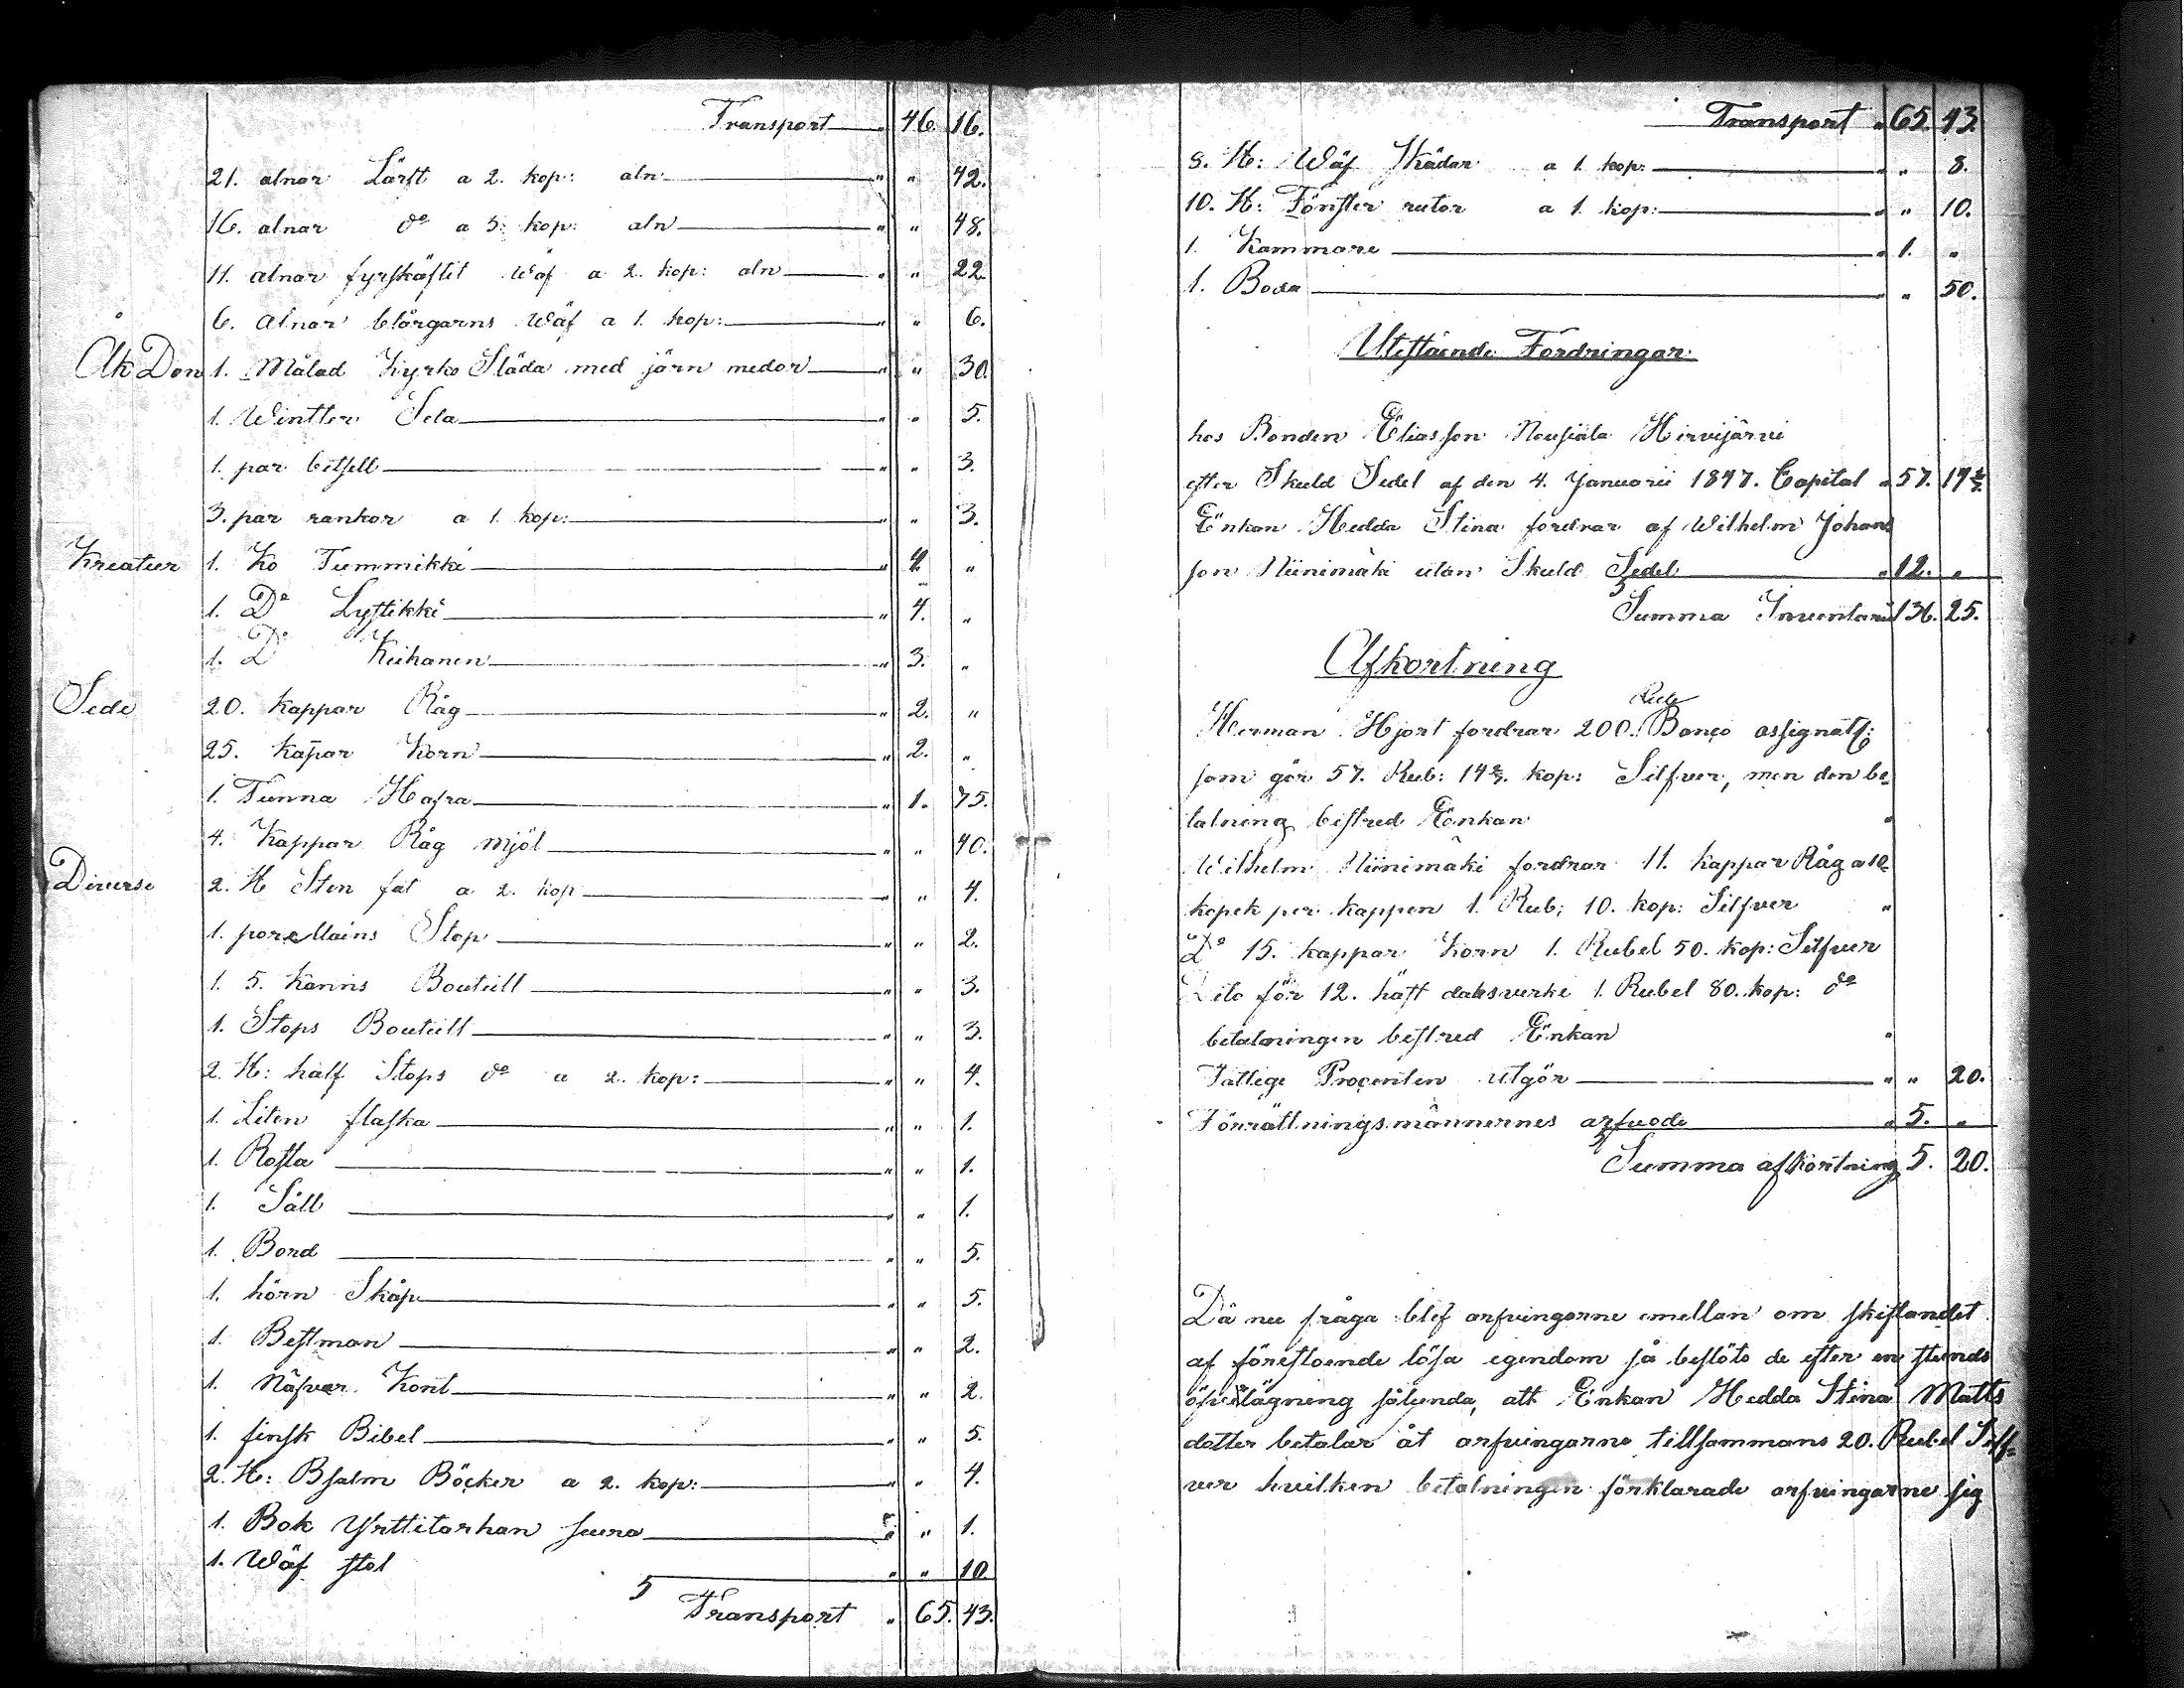 Transport " 46. 16.
21. alnar Lärft a 2. kop: aln " " 42.
16. alnar do a 3. kop: aln " " 48.
11. alnar fyrskäftit Wäf a 2. kop: aln " " 22.
6. alnar blårgarns Wäf a 1. kop: " " 6.
Åk Don 1. Målad Kyrko Släda med järn medor " " 30.
1. Wintter Sela " " 5.
1. par betsell " " 3.
3. par rankor a 1. kop: " " 3.
Kreatur 1. Ko Tummikki " 4. "
1. Do Lyttikki " 4. "
1. Do Kiihanen " 3. "
Sede 20. kappar Råg " 2. "
25. kapar Korn " 2. "
1. Tunna Hafra " 1. 75.
4. Kappar Råg mjöl " " 40.
Diverse 2. St Sten fat a 2. kop " " 4.
1. porcellains Stop " " 2.
1. 5. kanns Bouteill " " 3.
1. Stops Bouteill " " 3.
2. St: half Stops do a 2. kop: " " 4.
1. Liten flaska " " 1.
1. Rosta " " 1.
1. Såll " " 1.
1. Bord " " 5.
1. hörn Skåp " " 5.
1. Bestman " " 2.
1. Näfver Kont " " 2.
1. finsk Bibel " " 5.
2. St: Psalm Böcker a 2. kop: " " 4.
1. Bok Yrttitarhan seura " " 1.
1. Wäf stol " " 10.
Transport " 65. 43.
Transport " 65. 43.
8. St: Wäf Skädar a 1. kop: " " 8.
10. St: Fönster rutor a 1. kop: " " 10.
1. Kammare " 1. "
1. Boda " " 50.
Utestående Fordringar
hos Bonden Eliasson Nousiala Hirvijärvi
efter Skuld Sedel af den 4. Januarii 1847. Capital " 57. 14 2/7.
Enkan Hedda Stina fordrar af Wilhelm Johans
son Niinimäki utan Skuld Sedel " 12. "
Summa Inventarii 136. 25.
Afkortning
Herman Hjort fordrar 200. Rub Banco assignats:
som gör 57. Rub: 14 2/7. kop: Silfver, men den be-
talning bestred Enkan "
Wilhelm Niinimäki fordrar 11. kappar Råg a 10
kopek per kappen 1. Rub; 10. kop: Silfver "
Do 15. kappar Korn 1. Rubel 50. kop: Silfver
Dito för 12. hätt daksverke 1. Rubel 80. kop: do
betalningen bestred Enkan "
Fattige Procenten utgör " " 20.
Förrättningsmännernes arfvode " 5. "
Summa afkortning 5. 20.
Då nu fråga blef arfvingarne emellan om skiftandet
af förestående lösa egendom så beslöto de efter en stunds
öfverlägning sålunda, att Enkan Hedda Stina Matts
dotter betalar åt arfvingarne tillsammans 20. Rubel Silf-
ver hvilken betalningen förklarade arfvingarne sig